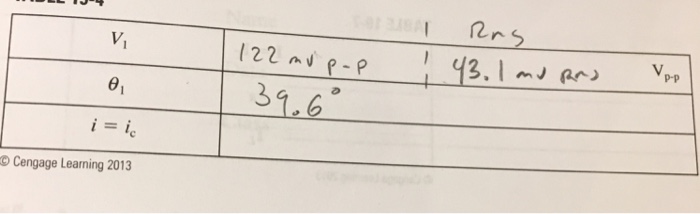 Rms
V₁ 122 mV p-p 43.1 mV Rms Vp-p
θ₁ 39.6°
i = ic
© Cengage Learning 2013